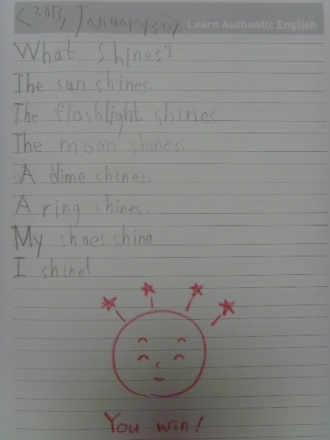 <2013, January 30>
Learn Authentic English
What shines?
The sun shines.
The flashlight shines
The moon shines.
A dime shines.
A ring shines.
My shoes shine
I shine!
You win!